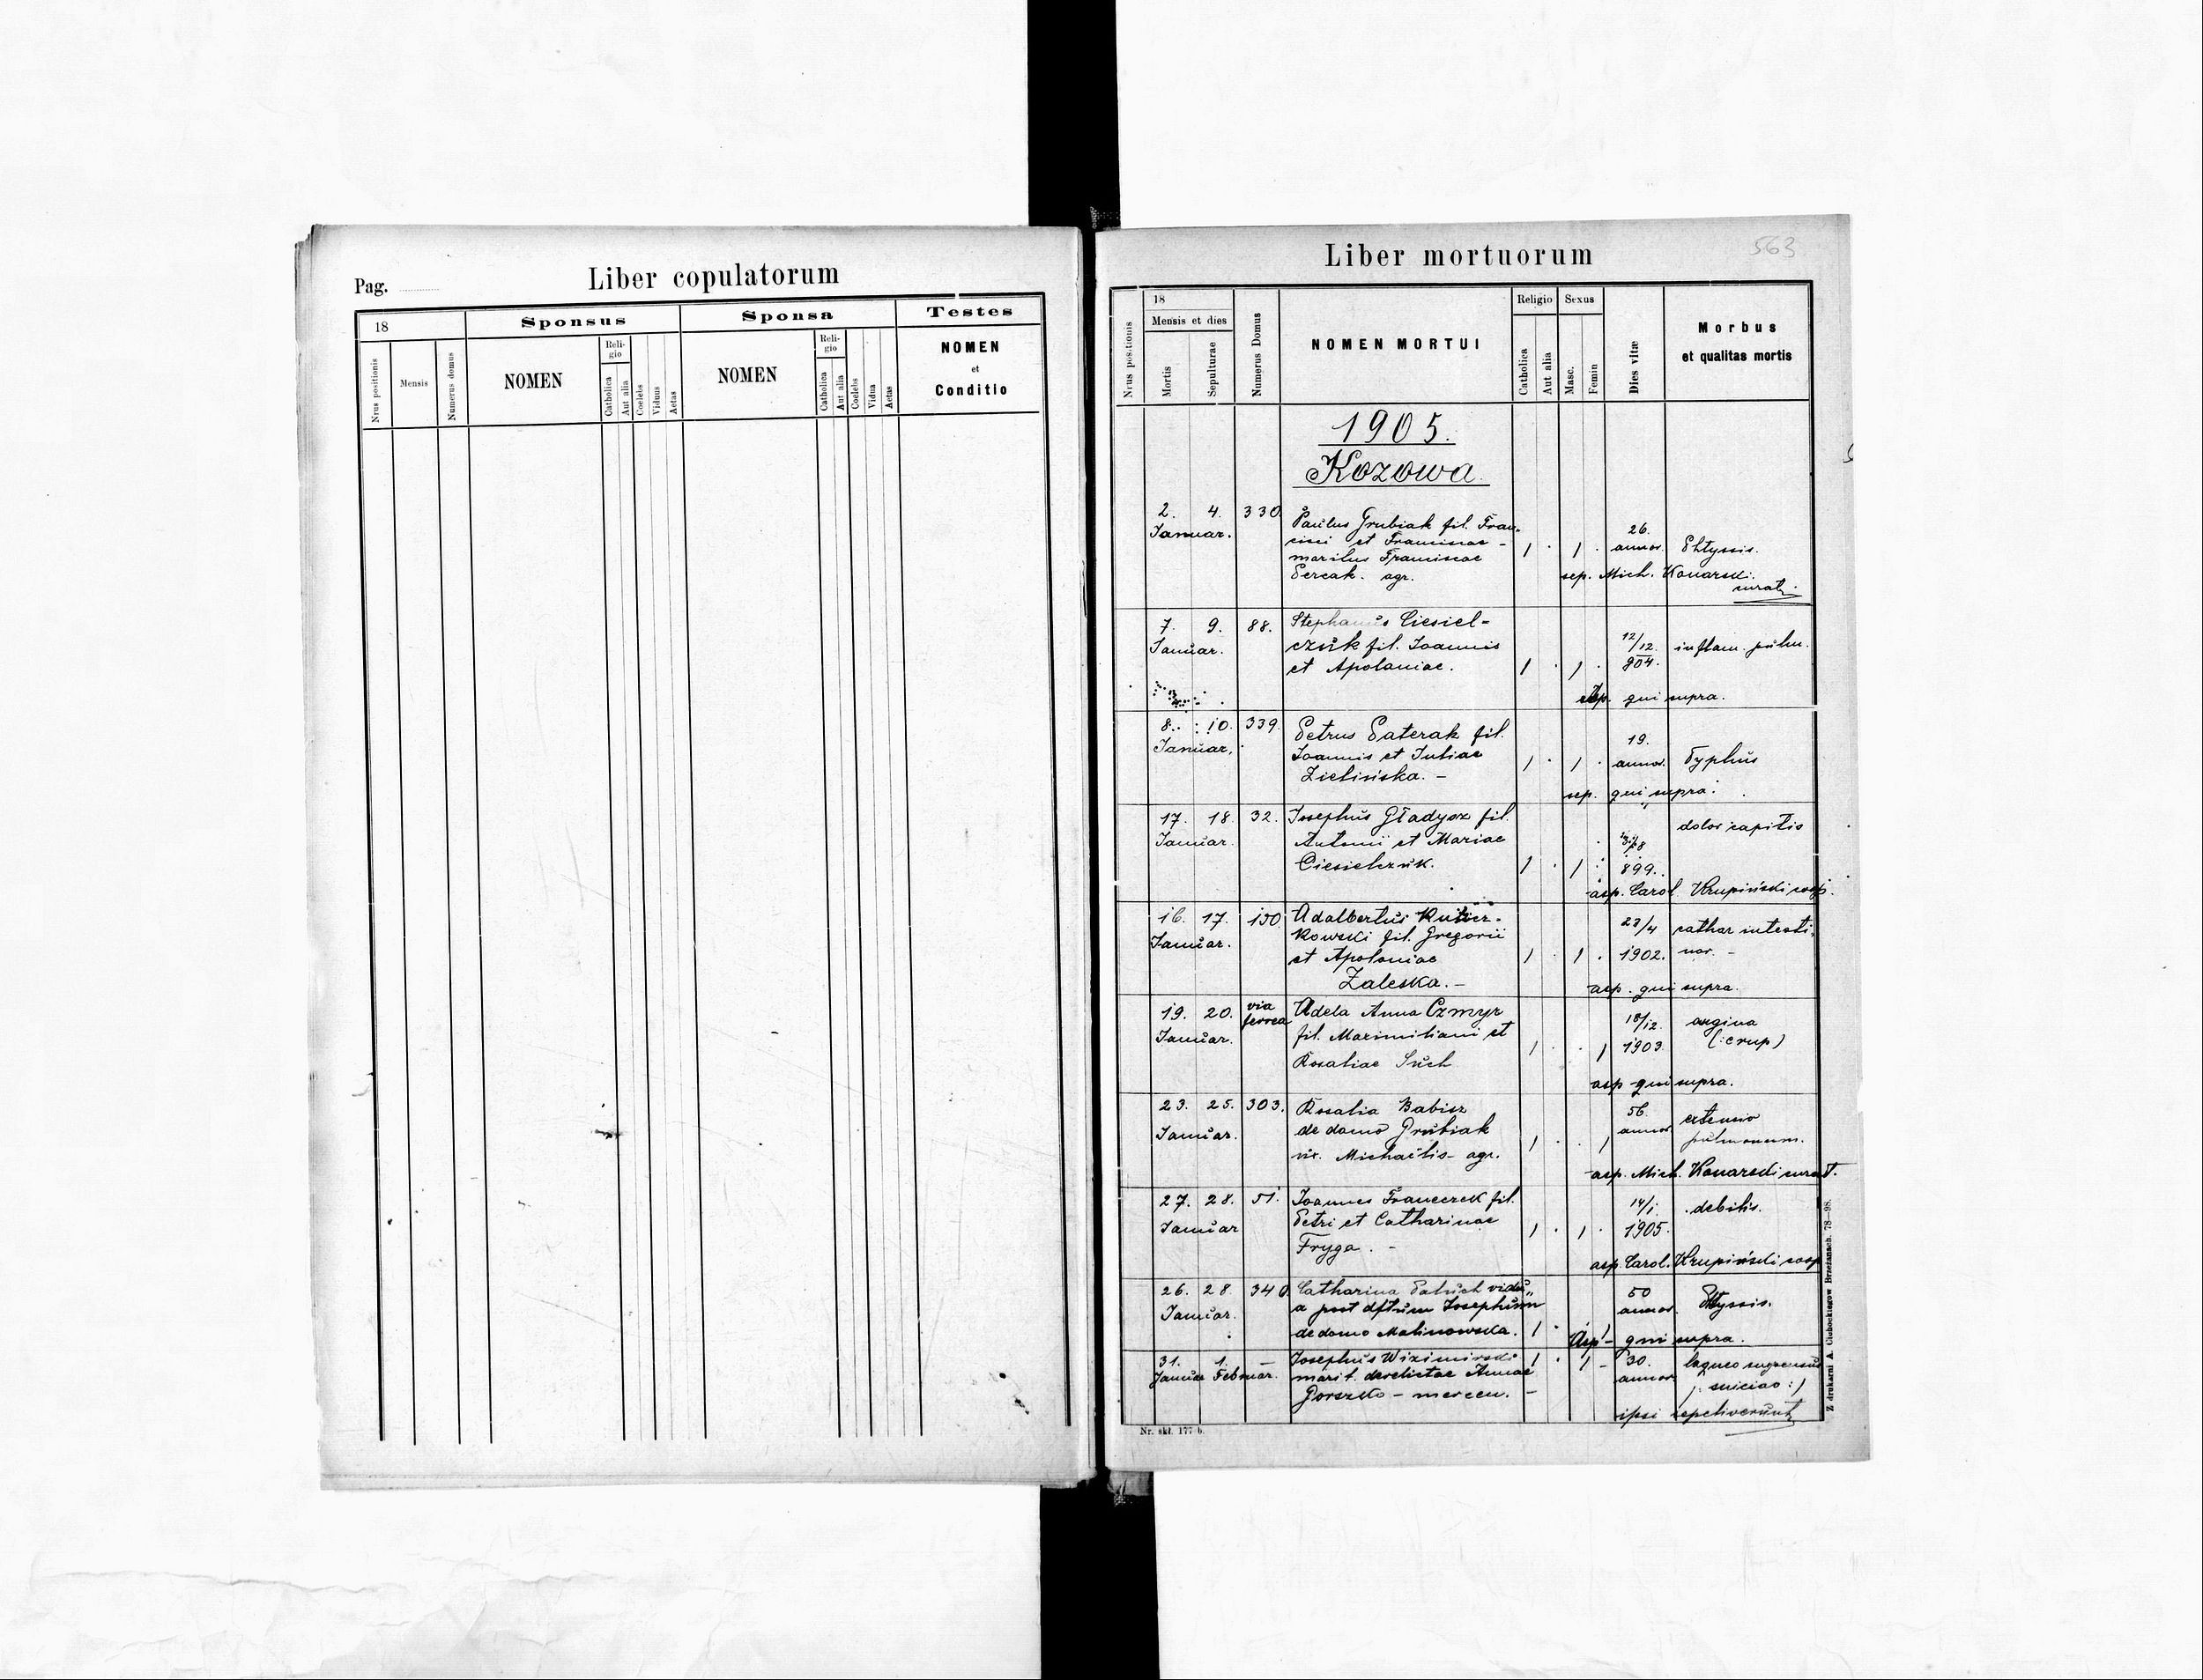 Pag.
Liber copulatorum
18
Sponsus
Sponsa
Testes
Nrus positionis
Mensis
Numerus domus
NOMEN
Reli-
gio
Catholica
Aut alia
Coelebs
Viduus
Aetas
NOMEN
Reli-
gio
Catholica
Aut alia
Coelebs
Vidua
Aetas
NOMEN
et
Conditio
Liber mortuorum
563
Nrus positionis
18
Mensis et dies
Mortis
Sepulturae
Numerus Domus
NOMEN MORTUI
Religio
Catholica
Aut alia
Sexus
Masc.
Femin
Dies vitæ
Morbus
et qualitas mortis
1905.
Kozowa.
2. 4. 330. Paulus Grubiak fil. Fran-
Januar. cisci et Franciscae -
maritus Franciscae
agr.
1 . 1 . 26. annor. Phtyssis.
sep. Mich. Konarski.
curat.
7. 9. 88. Stephanus Ciesiel-
Januar. czuk fil. Joannis
et Apoloniae.
1 . 1 . 12/12. 904. inflam. pulm.
qui supra.
8. 10. 339. Petrus Paterak fil.
Januar. Joannis et Juliae
Zielińska. -
1 . 1 . 19. annor. Typhus
sep. qui supra.
17. 18. 32. Josephus Gładysz fil.
Januar. Antonii et Mariae
Ciesielczuk.
1 . 1 . 899. dolor capitis
asp. Carol. Krupiński coop.
16. 17. 150. Adalbertus
Januar. kowski fil. Gregorii
et Apoloniae
Zaleska. -
1 . 1 . 23/4 1902. cathar intesti-
nor. -
asp. qui supra.
19. 20. via ferrea Adela Anna Czmyr
Januar. fil. Maximiliani et
Rosaliae Such
1 . . 1 18/12. 1903. angina
(: crup)
asp qui supra.
23. 25. 303. Rosalia Babisz
Januar. de domo Grubiak
vix. Michaelis - agr.
1 . . 1 56. annor extensio
pulmonum.
asp. Mich. Konarski curat.
27. 28. 51. Joannes Franeczek fil.
Januar Petri et Catharinae
Fryga. -
1 . 1 . 14/1. 1905. debilis.
asp. Carol. Krupiński coop
26. 28. 340. Catharina vidu„
Januar. a post dftum Josephum
de domo Malinowska.
1 . 1 - 50 annor. Phtyssis.
Asp qui supra.
31. 1. — Josephus
Januar Februar. marit. derelictae Annae
Gorszko - mercen. -
1 . 1 - 30. annor laqueo
ipsi sepeliverunt
Nr. skł. 177 b.
Z drukarni A. Cichockiegow Brzeżanach. 78—98.